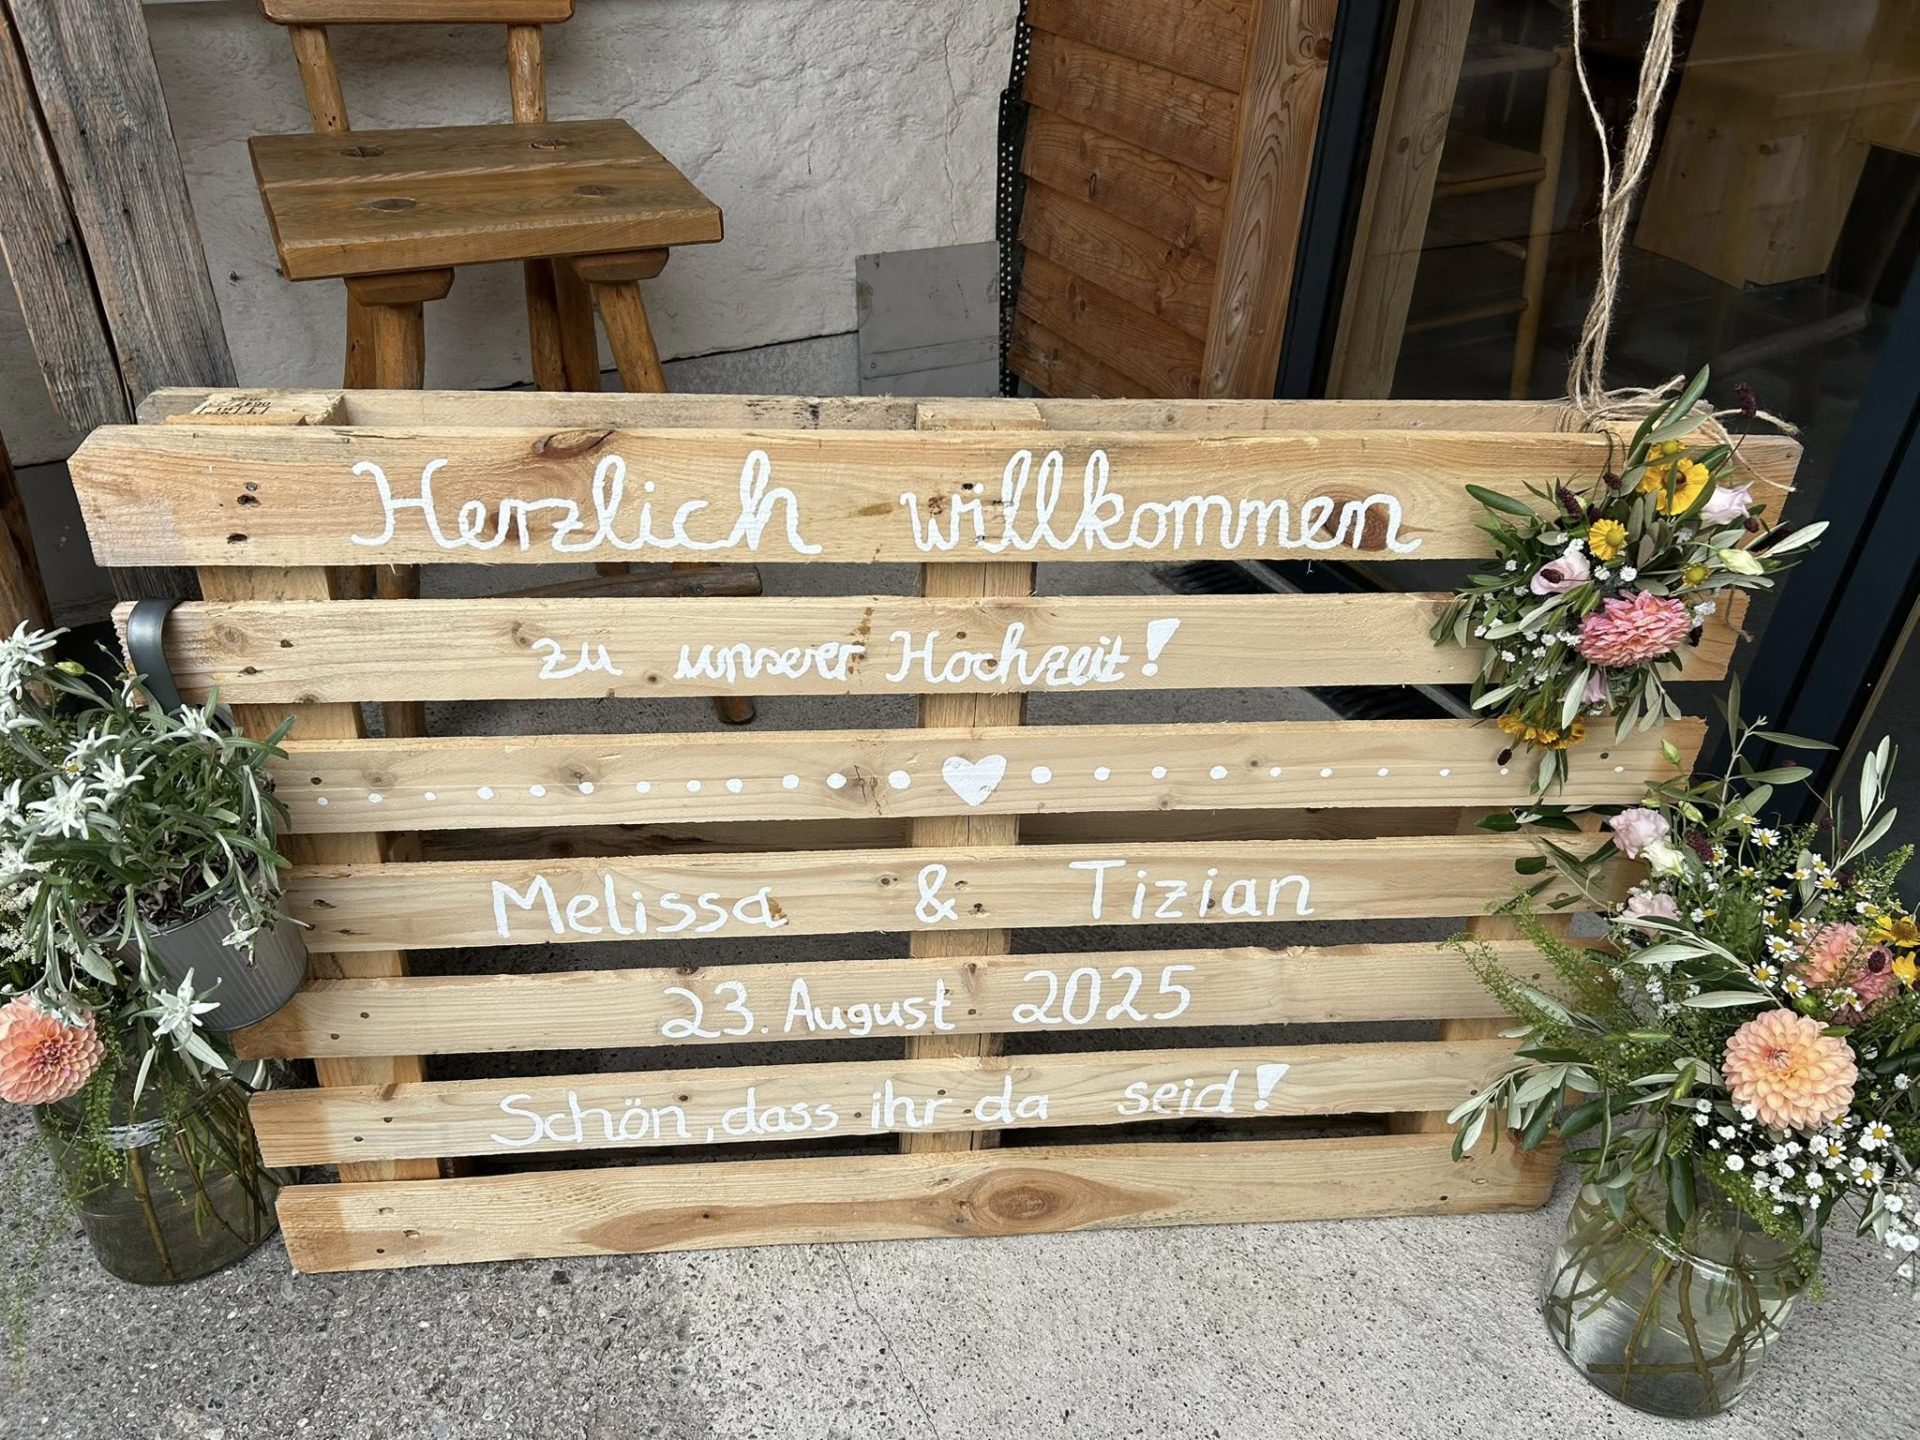 Herzlich willkommen
zu unserer Hochzeit!
Melissa & Tizian
23. August 2025
Schön, dass ihr da seid!